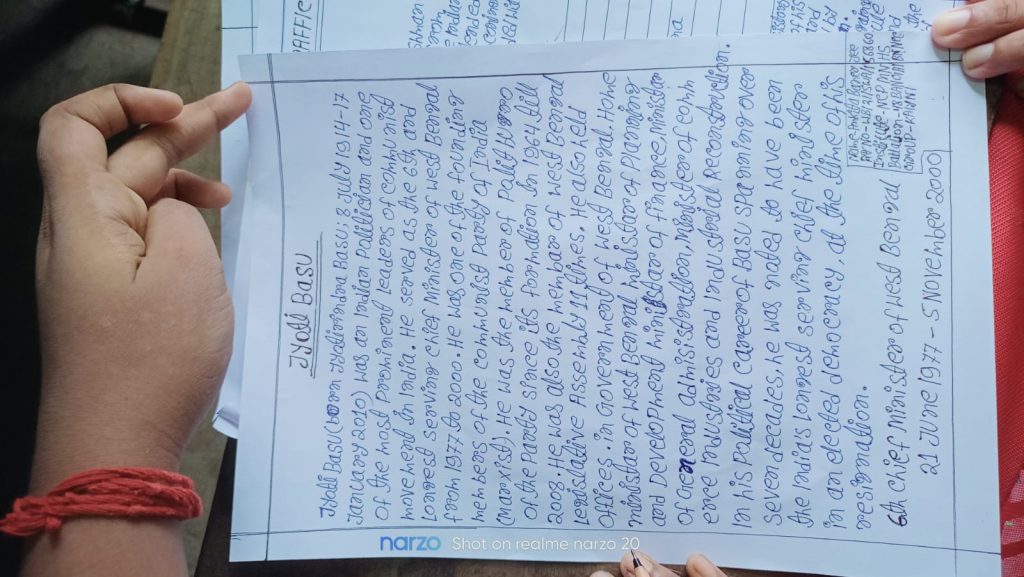 Jyoti Basu
Jyoti Basu (born Jyotirindra Basu; 8 July 1914-17
January 2010) was an Indian Politician and one
of the most prominent leaders of communist
movement in India. He served as the 6th and
longest serving chief Minister of west Bengal
from 1977 to 2000. He was one of the founding
members of the communist Party of India
(marxist). He was the member of Polit Buro
of the party since its formation in 1964 till
2008. He was also the member of west Bengal
Legislative Assembly 11 times. He also held
offices. in Government of west Bengal. Home
minister of west Bengal minister of Planning
and Development minister of finance, minister
of General admisistoration, minister of comm
erce industries and industrial Reconstruction.
In his Political career of Basu spanning over
seven decades, he was noted to have been
the India's longest serving chief minister
in an elected democracy, at the time of his
resignation.
6th chief Minister of West Bengal
21 JUNE 1977 - 5 NOVEMBER 2000
narzo Shot on realme narzo 20